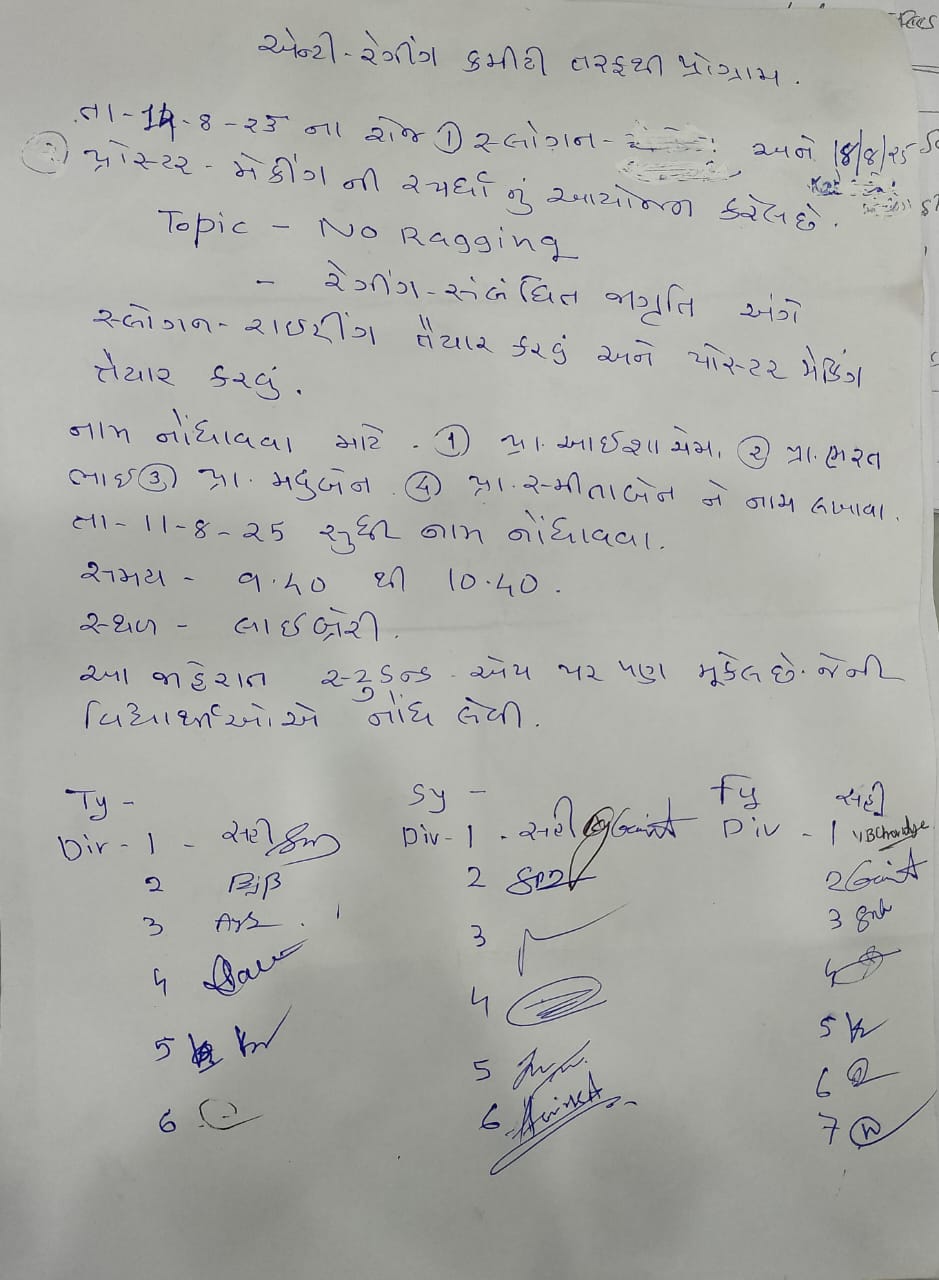 એન્ટી-રેગીંગ કમીટી તરફથી પ્રોગ્રામ.
તા-14-8-25 ના રોજ ① સ્લોગન- અને 18/8/25
પ્રોસ્ટર-મેકીંગ ની સ્પર્ધા નું આયોજન કરેલ છે.
Topic - No Ragging
- રેગીંગ-સંબંધિત જાગૃતિ અંગે
સ્લોગન-રાઇટીંગ તૈયાર કરવું અને પોસ્ટર મેકિંગ
તૈયાર કરવું.
નામ નોંધાવવા માટે . ① પ્રા.આઈશા મેમ. ② પ્રા.ભરત
ભાઇ ③ પ્રા. મધુબેન . ④ પ્રા.સ્મીતાબેન ને નામ લખાવા.
તા-11-8-25 સુધી નામ નોંધાવવા.
સમય - 9.40 થી 10.40.
સ્થળ - લાઇબ્રેરી.
આ જાહેરાત સ્ટુડન્ટ-એપ પર પણ મૂકેલ છે. જેની
વિધાર્થીઓએ નોંધ લેવી.
Ty - Sy - Fy સહી
Div-1 - સહી Div-1 - સહી Div - 1
2 2 2
3 3 3
4 4 4
5 5 5
6 6 6
7